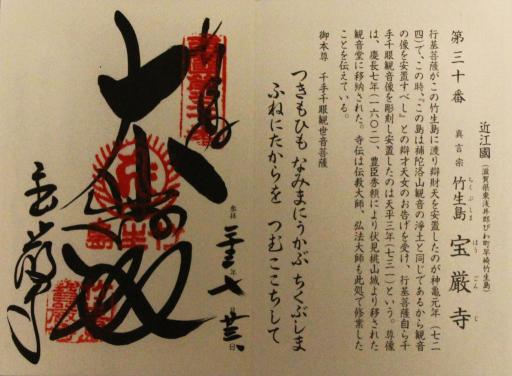 近江國（滋賀県東浅井郡びわ町早崎竹生島）
第三十番　真言宗　竹生島　宝厳寺
ちくぶしま　ほうごんじ
行基菩薩がこの竹生島に渡り辯財天を安置したのが神亀元年（七二
四）で、この時、「この島は補陀洛山観音の浄土と同じであるから観音
の像を安置すべし」との辯才天女のお告げを受け、行基菩薩自ら千
手千眼観音像を彫刻し安置したのは天平三年（七三一）という。尊像
は、慶長七年（一六〇二）、豊臣秀頼により伏見桃山城より移された
観音堂に移納された。寺伝は伝教大師、弘法大師も此処で修業した
ことを伝えている。
御本尊　千手千眼観世音菩薩
つきもひも　なみまにうかぶ　ちくぶしま
ふねにたからを　つむここちして
参拝　年　月　日
大悲殿
宝厳寺